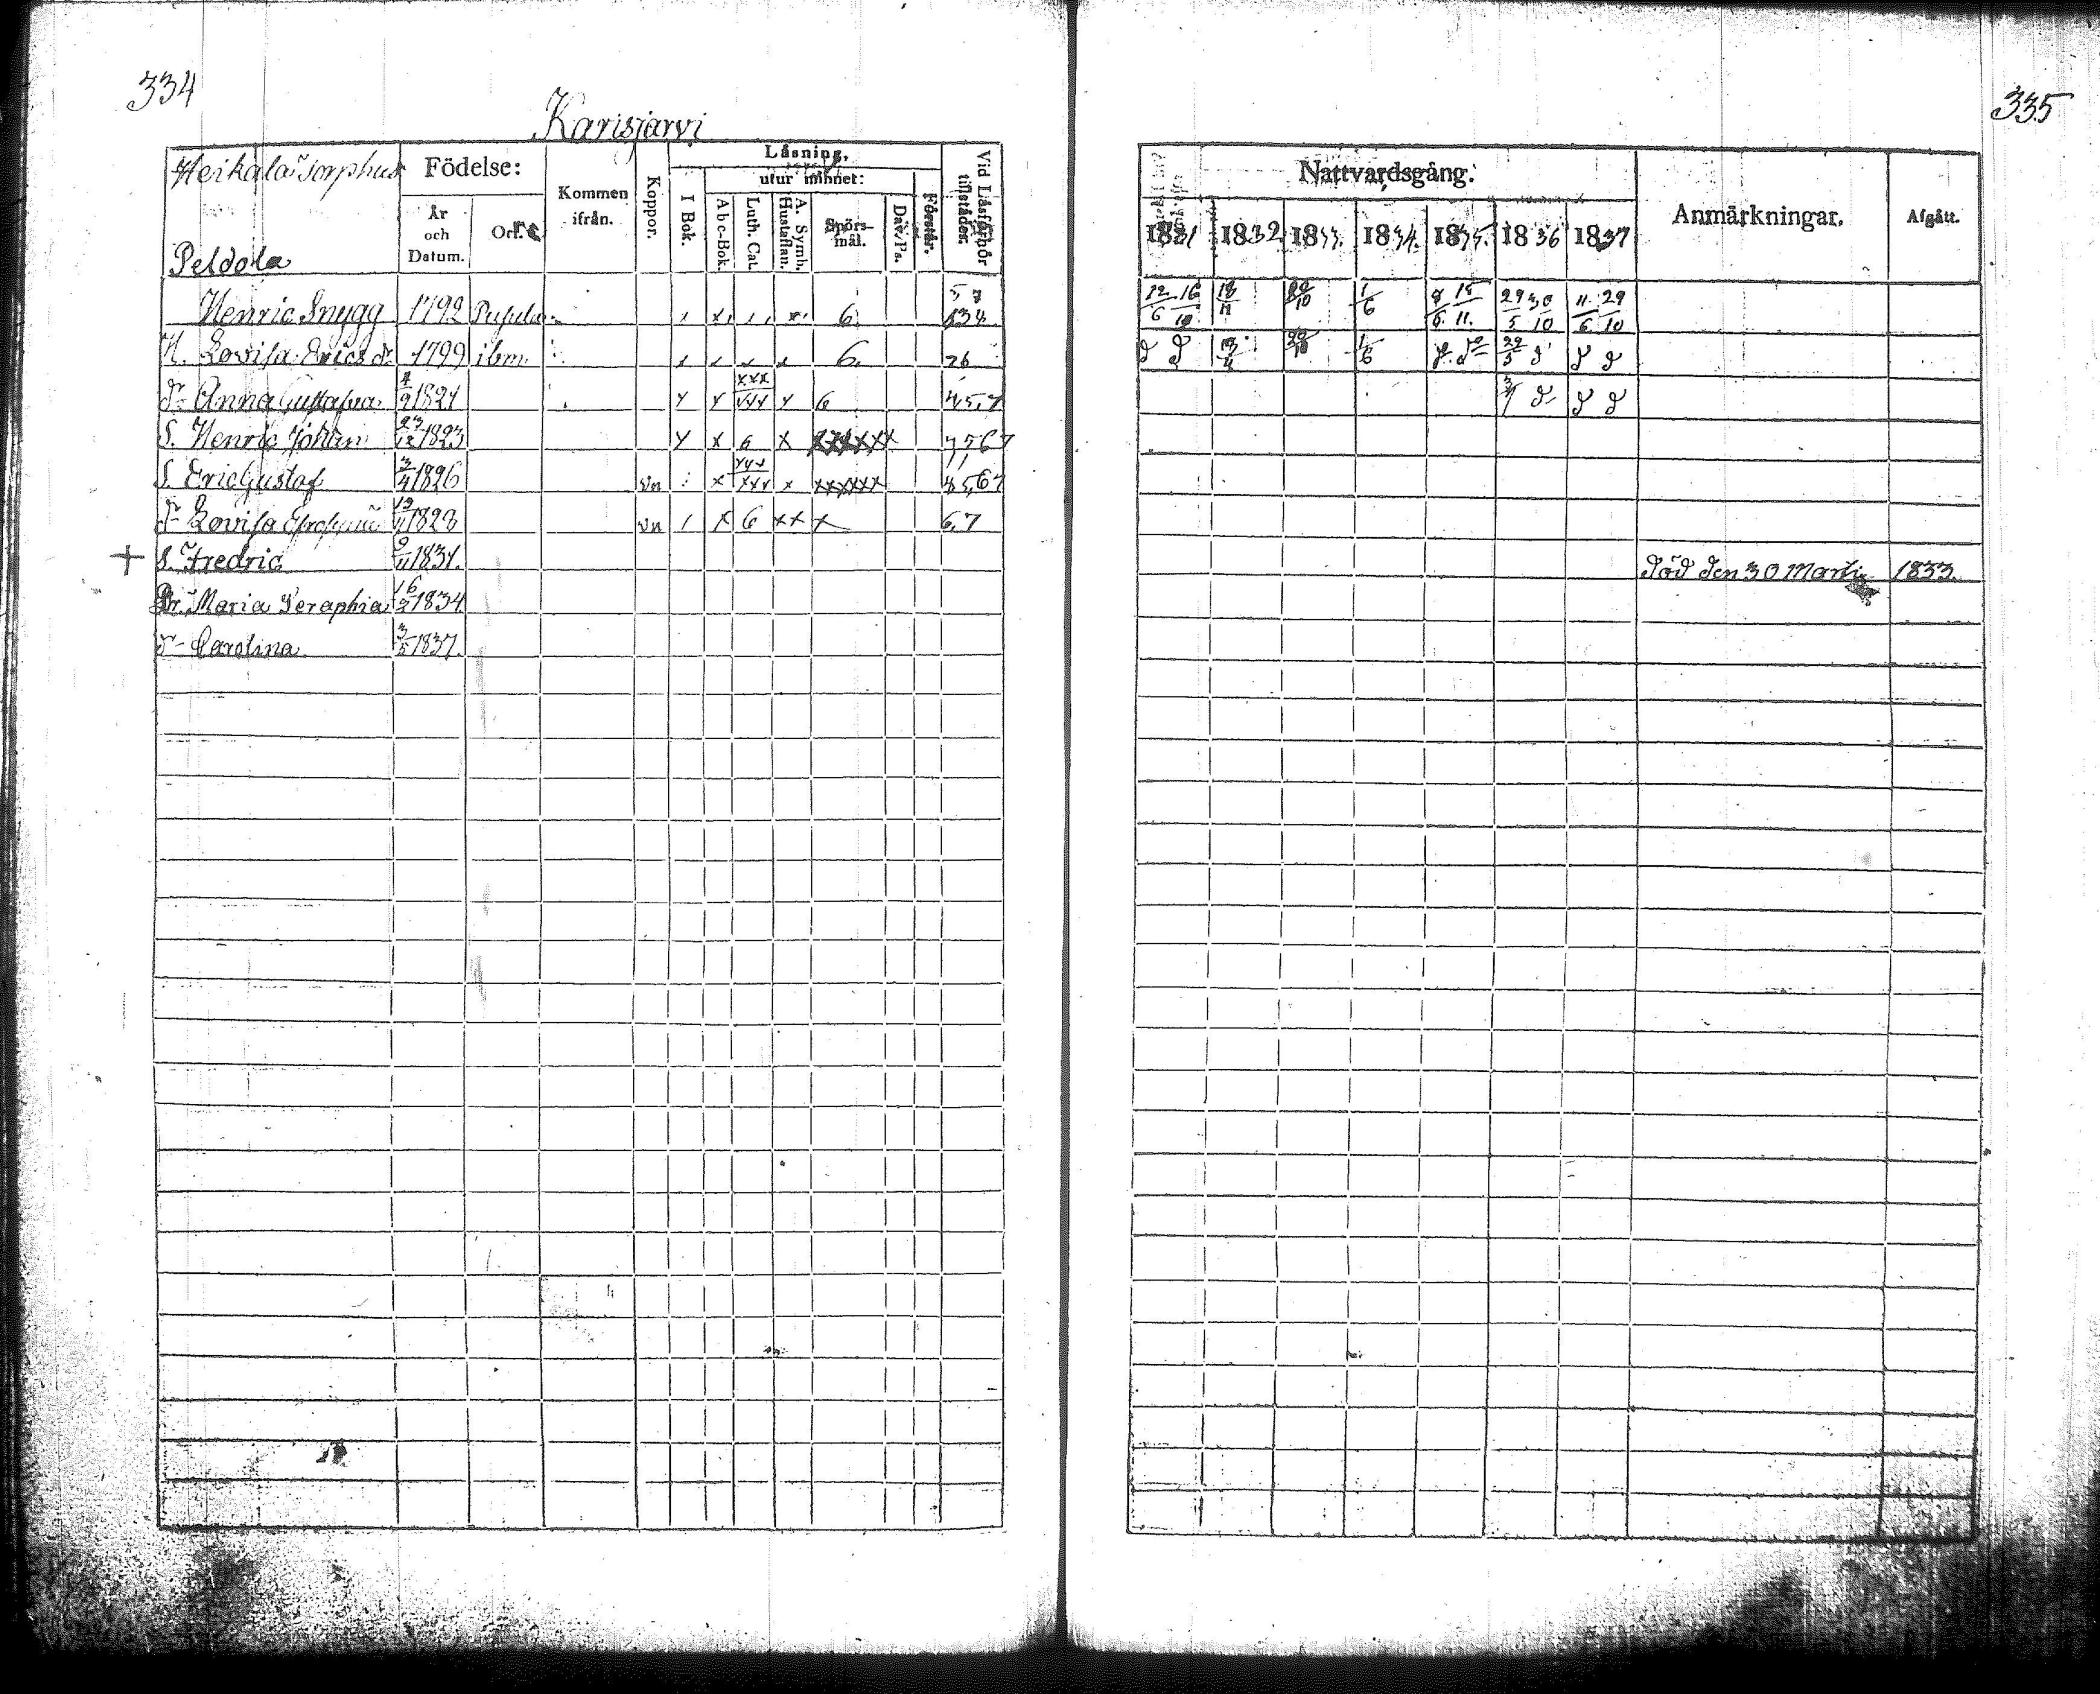 334
Karisjärvi
Heikala Torphus
Peldola
Födelse:
År och Datum.
Ort.
Kommen ifrån.
Koppor.
Läsning,
I Bok.
utur minnet:
Abc-Bok.
Luth. Cat.
A. Symb. Hustaflan.
Spörsmål.
Dav. Ps.
Förstår.
Vid Läsförhör tillstädes.
Henric Snygg 1792 6
H. Lovisa Erics dr 1799 ibm 6. 26
dr Anna Gustafva 4/9 1821 x x xxx xxx x 6 4,5,7
S. Henric Johan 27/12 1823 x x 6 x xxxxxx 567
S. Eric Gustaf 3/4 1826 vn x xxx xxx x xxxxxx 4567
dr Lovisa 1828 vn x 6 xx x 6,7
+ S. Fredric 9/11 1831.
Dr. Maria Seraphia 16/2 1834
dr Carolina 3/5 1837.
335
Nattvardsgång.
1831 1832 1833. 1834. 1835. 1836 1837
Anmärkningar.
Afgått.
12/6 16/10 18/11 20/10 1/6 15/11. 29/5 30/10 11/6 29/10
d d 1/6 29/5 d d d
d d d
Död den 30 Martii 1833.